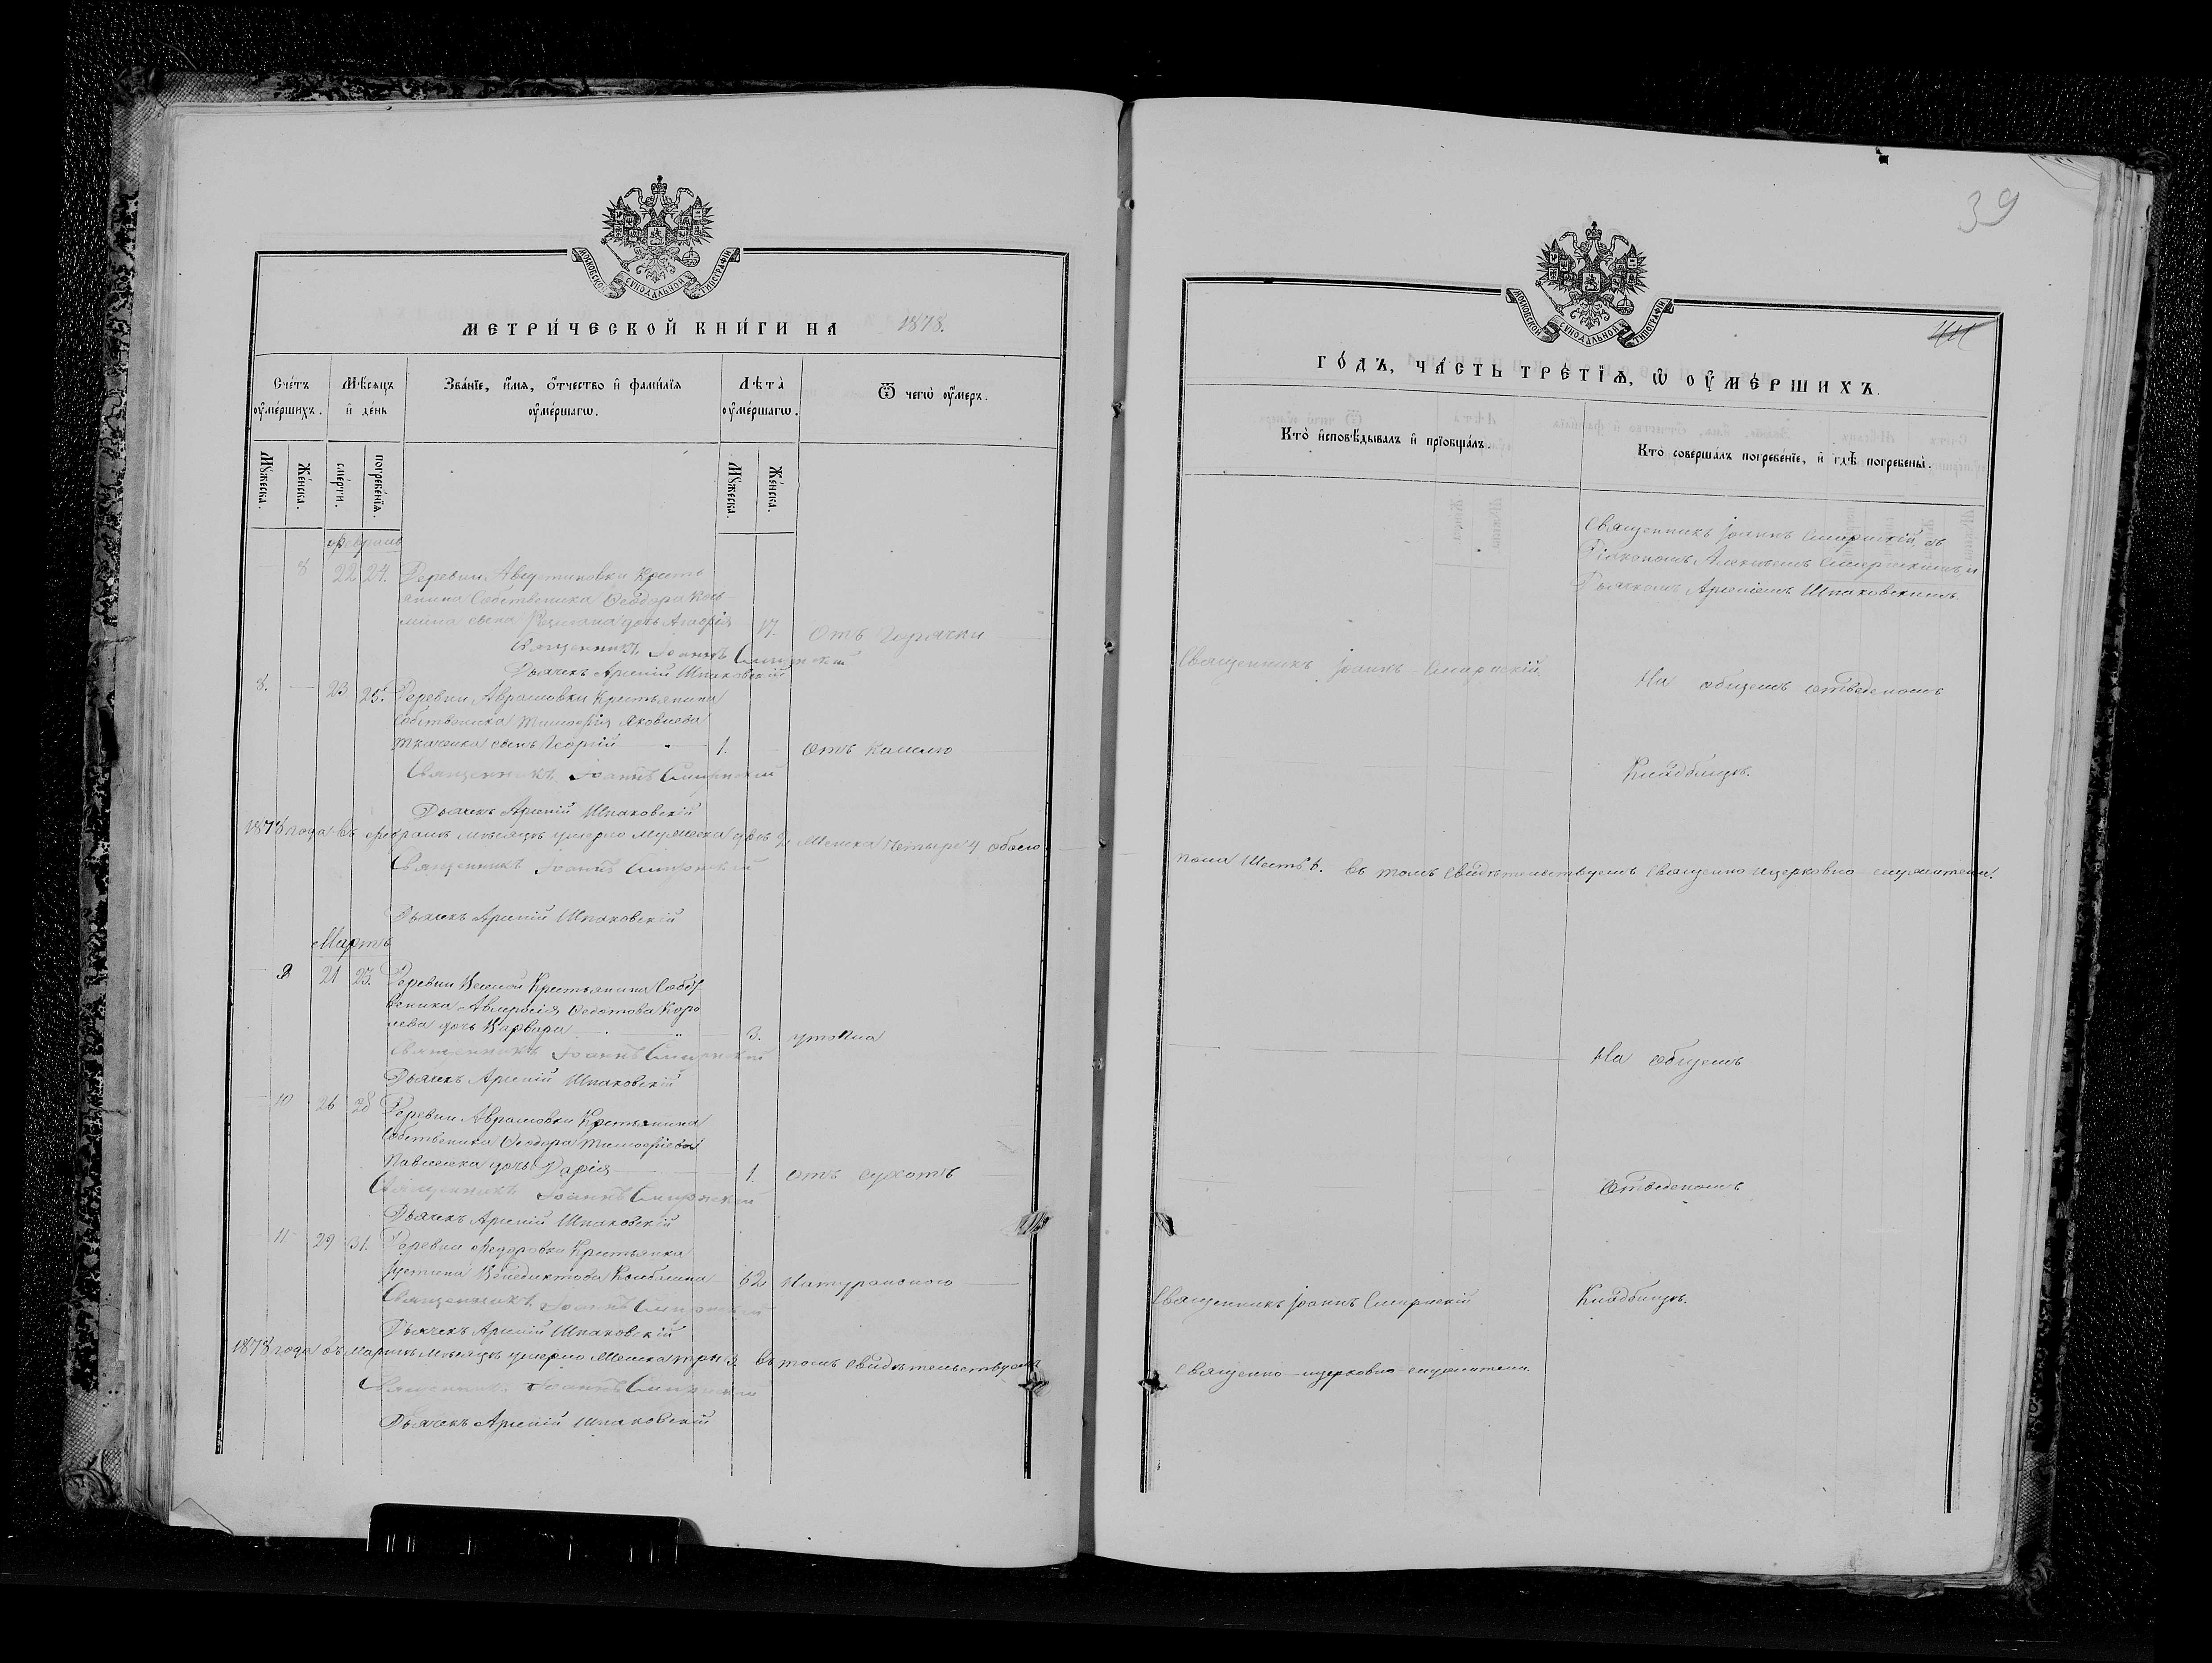 МОСКОВСКОЙ СѴНОДАЛЬНОЙ ТИПОГРАФІИ
МЕТРИ́ЧЕСКОЙ КНИ́ГИ НА 1878.
Сче́тъ ᲂу҆ме́ршихъ.
Мѣ́сяцъ и҆ де́нь
Зва́нїе, и҆́мя, ѻ҆́тчество и҆ фами́лїя ᲂу҆ме́ршагѡ.
Лѣта̀ ᲂу҆ме́ршагѡ.
Ѿ чегѡ̀ ᲂу҆́меръ.
Мꙋ́жеска.
Же́нска.
сме́рти.
погребе́нїѧ.
Мꙋ́жеска.
Же́нска.
Февраль
8 22 24. Деревни Августиновки Кресть
янина Собственика Ѳеодора Кось
мина сына дочь Агафія 17. Отъ Горячки
Священникъ Іоаннъ Смирнскій
Дьячекъ Арсеній Шпаковскій
8. 23 25. Деревни Аврамовки Крестьянина
Собственика Тимофія Яковлева
Ткаченка сынъ Георгій 1. Отъ Кашлю
Священникъ Іоаннъ Смирнскій
Дьячекъ Арсеній Шпаковскій
1878 года въ Февралѣ мѣсяцѣ умерло мужеска два 2, Женска Четыре 4 обоего
Священникъ Іоаннъ Смирнскій
Дьячекъ Арсеній Шпаковскій
Мартъ
9 21 23. Деревни Крестьянина Собст
веника Амвросія Ѳедотова Коро
лева дочь Варвара 3. утопла
Священникъ Іоаннъ Смирнскій
Дьячекъ Арсеній Шпаковскій
10 26 28 Деревни Аврамовки Крестьянина
Собственика Ѳеодора Тимофіева
Павленка дочь Дарія 1. отъ сухотъ
Священникъ Іоаннъ Смирнскій
Дьячекъ Арсеній Шпаковскій
11 29 31. Деревни Ѳедоровки Крестьянка
Іустина Венедиктова 62 Натуральною
Священникъ Іоаннъ Смирнскій
Дьячекъ Арсеній Шпаковскій
1878 года въ Мартѣ Мѣсяцѣ умерло Женска три 3. въ томъ Свидѣтельствуемъ
Священникъ Іоаннъ Смирнскій
Дьячекъ Арсеній Шпаковскій
39
МОСКОВСКОЙ СѴНОДАЛЬНОЙ ТИПОГРАФІИ
ГО́ДЪ, ЧА́СТЬ ТРЕ́ТЇѦ, Ѡ҆ ОУ҆МЕ́РШИХЪ.
Кто̀ и҆сповѣ́дывалъ и҆ прїобща́лъ.
Кто̀ соверша́лъ погребе́нїе, и҆ гдѣ̀ погребены̀.
Священникъ Іоаннъ Смирнскій съ
Діакономъ Алексѣемъ Смирнскимъ и
Дьячкомъ Арсеніемъ Шпаковскимъ
Священникъ Іоаннъ Смирнскій
На общемъ отведеномъ
Кладбищѣ.
пола Шесть 6. въ томъ Свидѣтельствуемъ Священно церковно-служители.
На общемъ
Отведеномъ
Священникъ Іоаннъ Смирнскій Кладбищѣ.
Священно-церковно-служители.